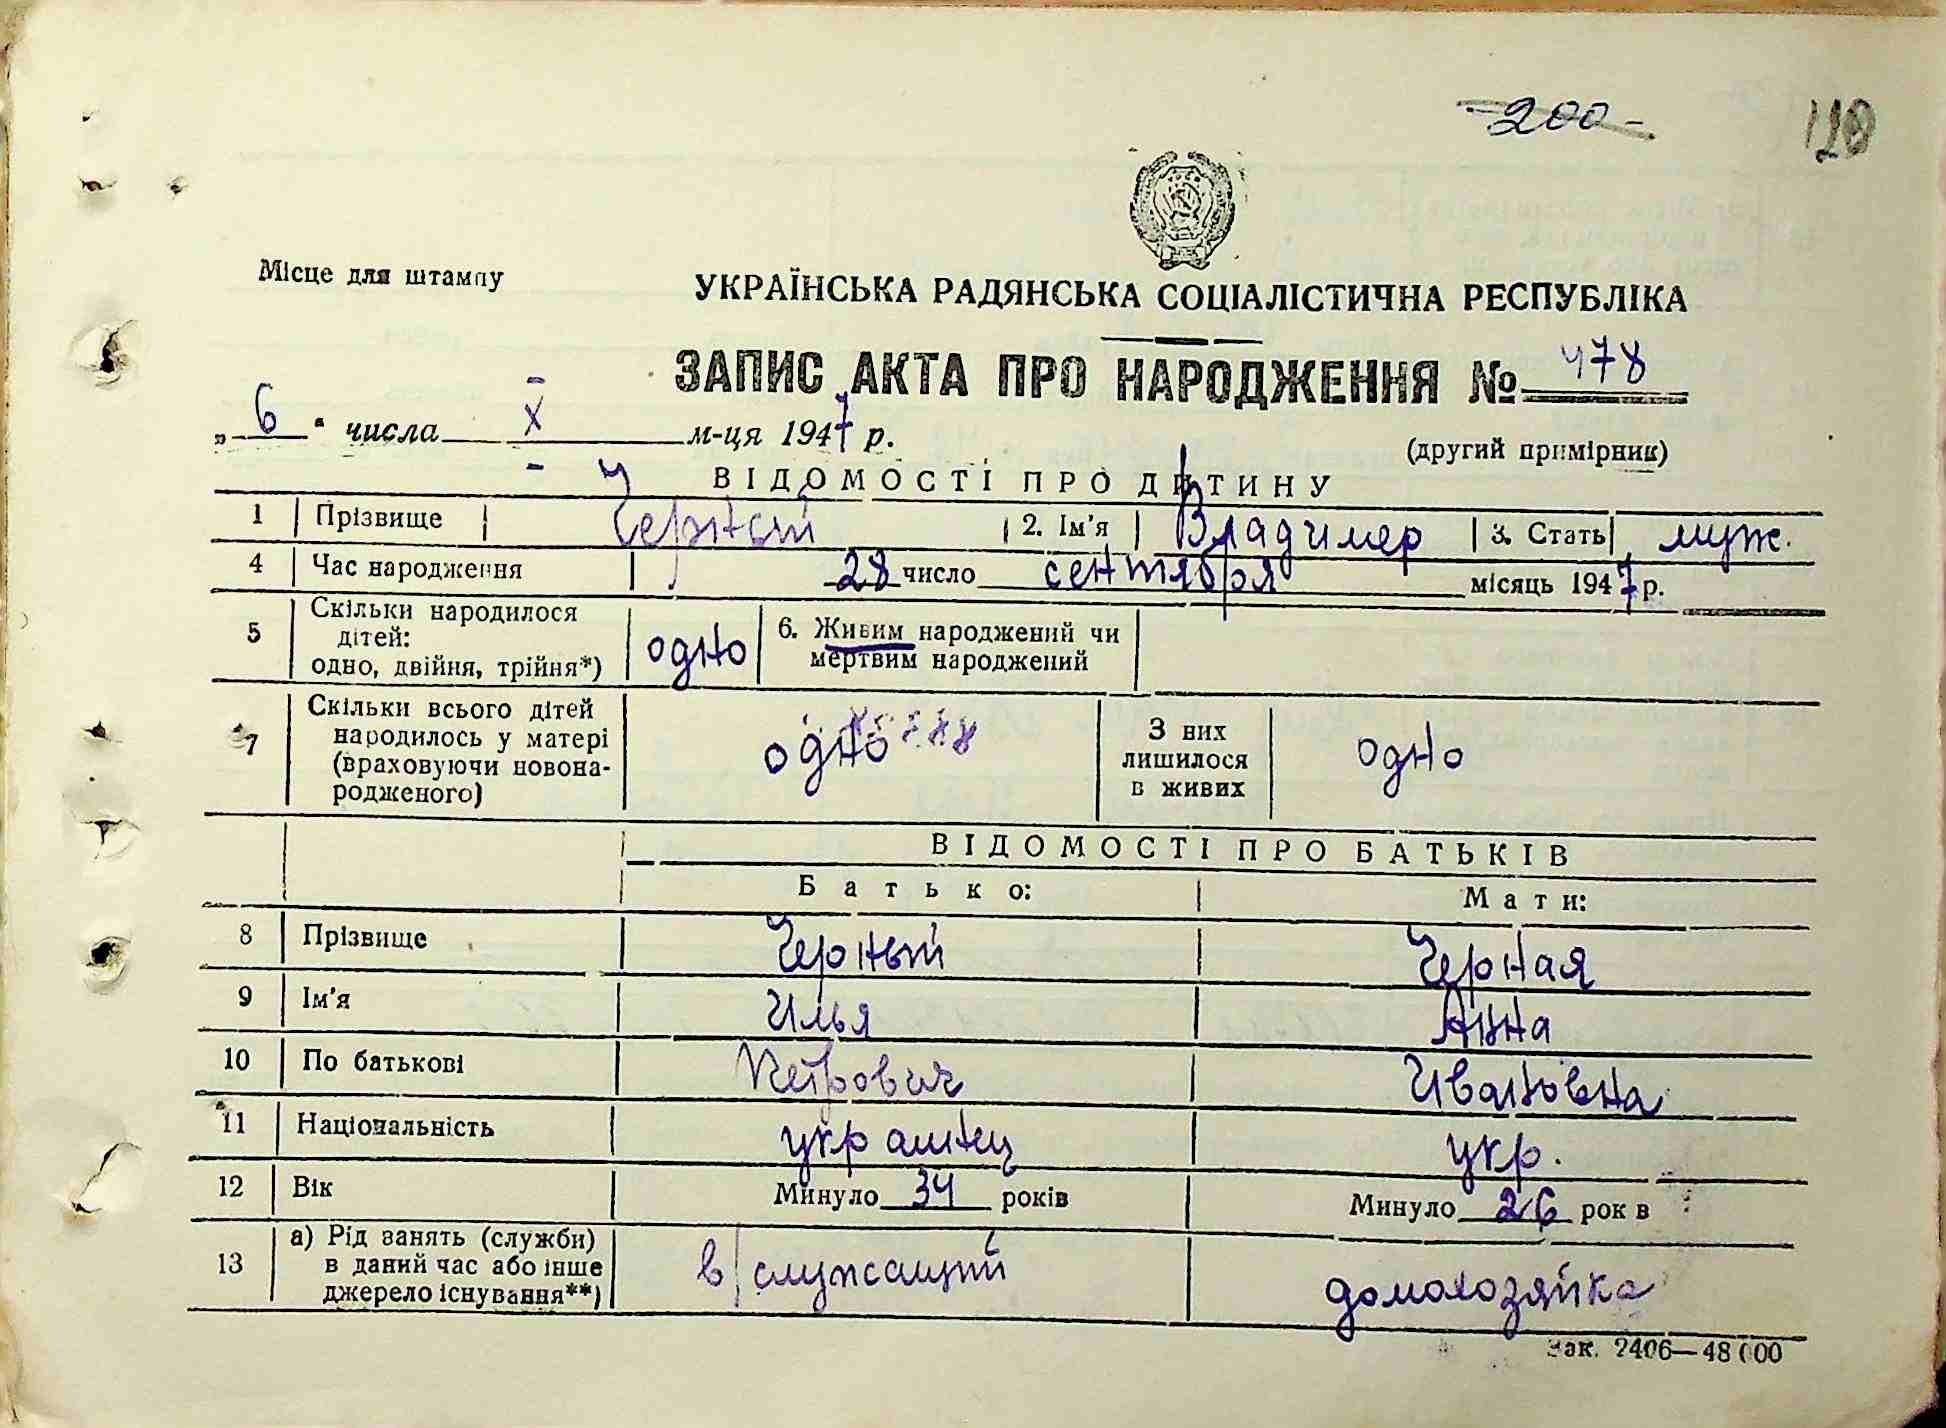 200-
Місце для штампу
УКРАЇНСЬКА РАДЯНСЬКА СОЦІАЛІСТИЧНА РЕСПУБЛІКА
ЗАПИС АКТА ПРО НАРОДЖЕННЯ № 478
„6“ числа X м-ця 1947 р.
(другий примірник)
ВІДОМОСТІ ПРО ДИТИНУ
1 Прізвище Черный 2. Ім'я Владимер 3. Стать муж.
4 Час народження 28 число сентября місяць 1947 р.
5 Скільки народилося дітей: одно, двійня, трійня*) одно 6. Живим народжений чи мертвим народжений
7 Скільки всього дітей народилось у матері (враховуючи новонародженого) одно З них лишилося в живих одно
ВІДОМОСТІ ПРО БАТЬКІВ
Батько: Мати:
8 Прізвище Черный Черная
9 Ім'я Илья Анна
10 По батькові Петрович Ивановна
11 Національність украинец укр.
12 Вік Минуло 34 років Минуло 26 рок в
13 а) Рід занять (служби) в даний час або інше джерело існування**) в/служащий домохозяйка
Зак. 2406—48000